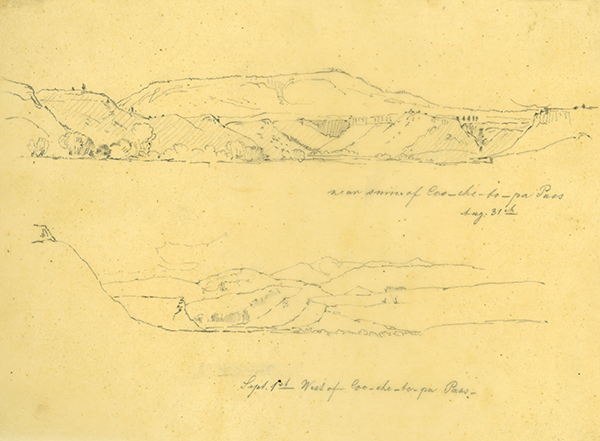 near summit of Coo-che-to-pa Pass
Aug. 31st
Sept. 1st West of Coo-che-to-pa Pass-